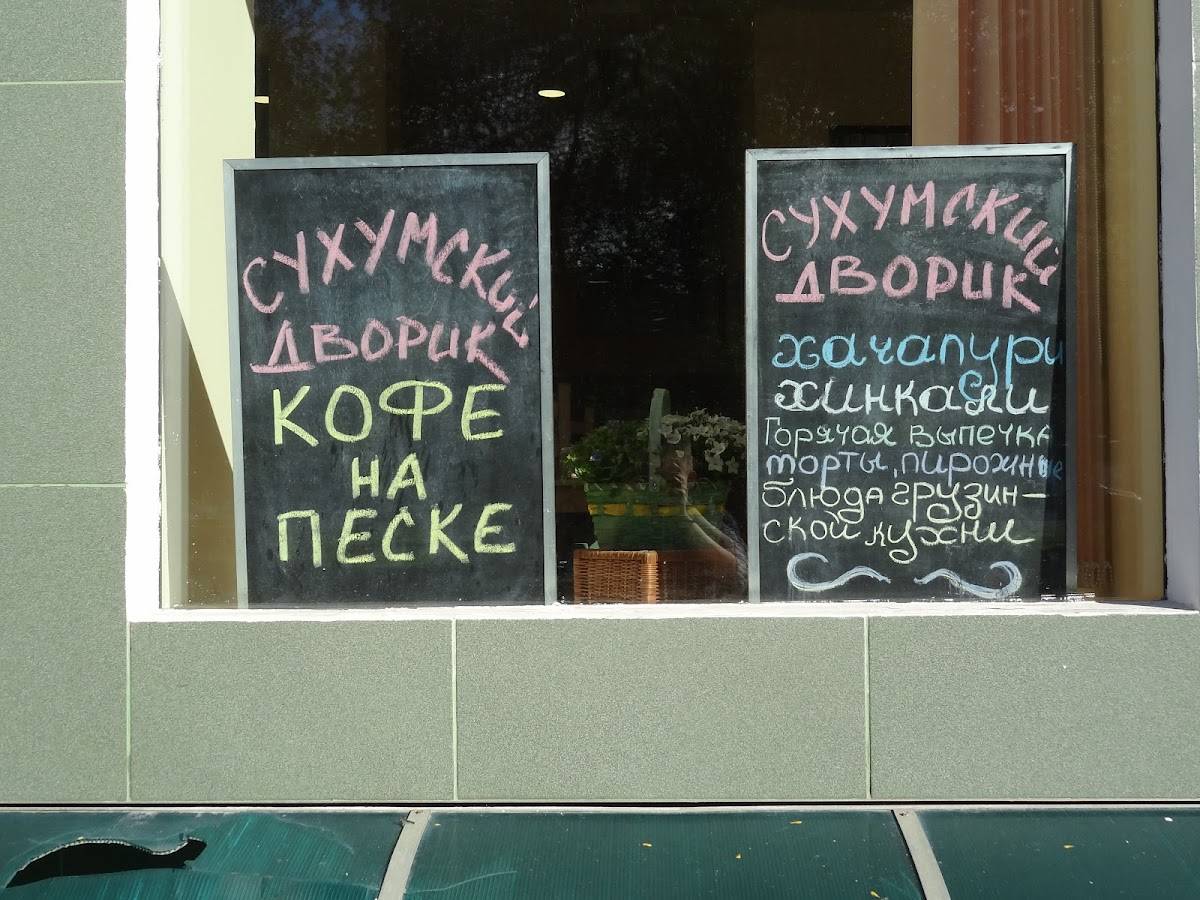 СУХУМСКИЙ
ДВОРИК
КОФЕ
НА
ПЕСКЕ
СУХУМСКИЙ
ДВОРИК
хачапури
хинкали
Горячая выпечка
торты, пирожные
блюда грузин-
ской кухни